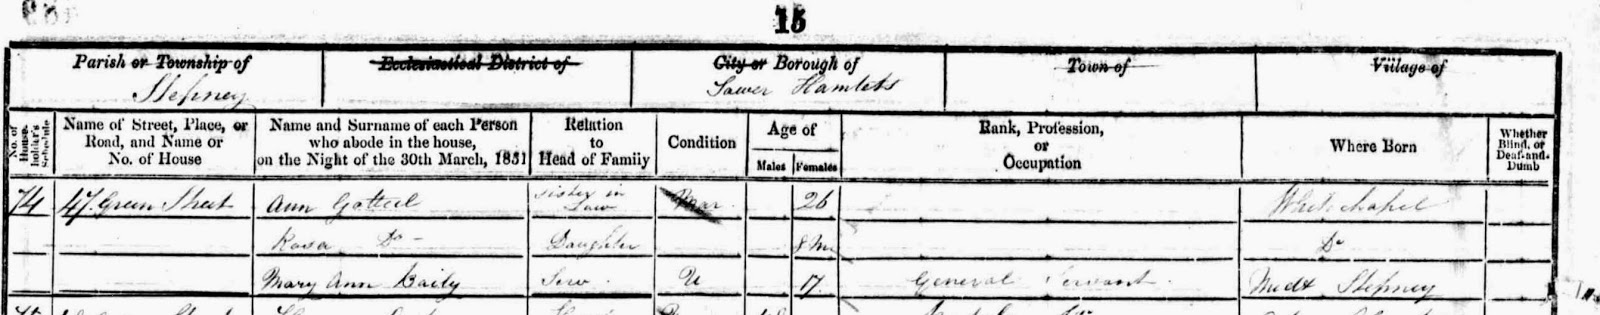 15
Parish or Township of
Stepney
Ecclesiastical District of
City or Borough of
Tower Hamlets
Town of
Village of
No. of House-holder's Schedule
Name of Street, Place, or Road, and Name or No. of House
Name and Surname of each Person who abode in the house, on the Night of the 30th March, 1851
Relation to Head of Family
Condition
Age of
Males
Females
Rank, Profession, or Occupation
Where Born
Whether Blind, or Deaf-and-Dumb
74 47 Green Street Ann Sister in Law Mar 26 Whitechapel
Rosa Do Daughter 8 Mo Do
Mary Ann Baily Serv U 17 General Servant Middx Stepney